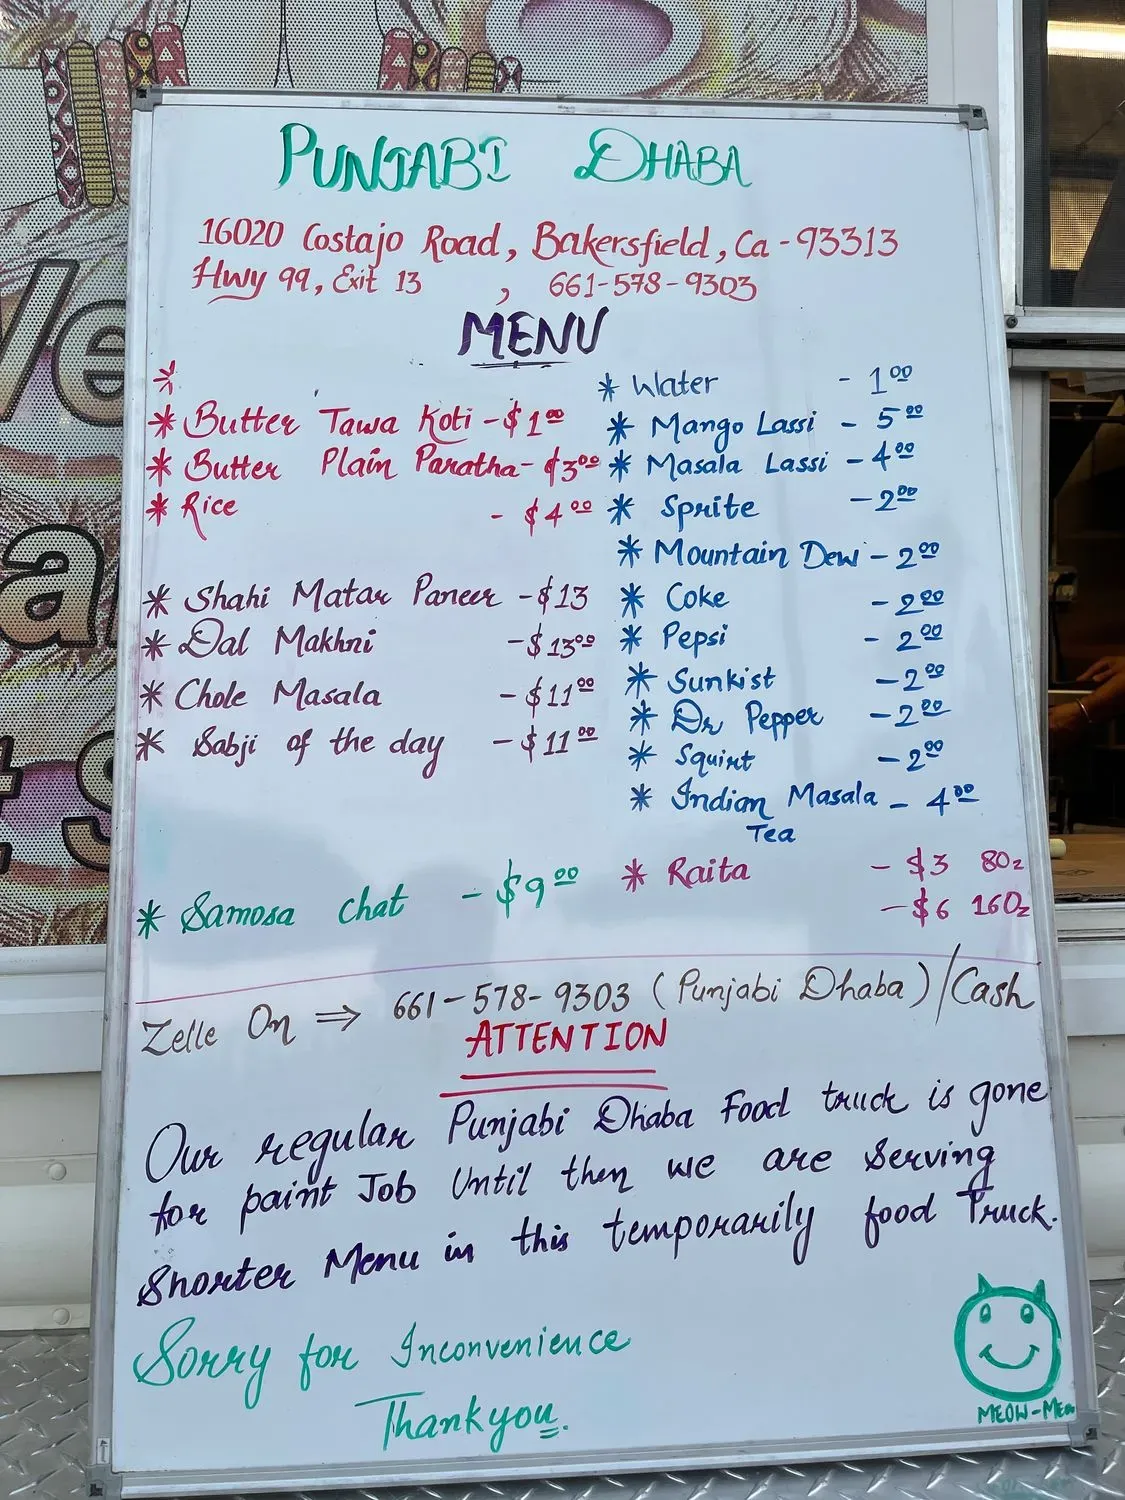 PUNJABI DHABA
16020 Costajo Road, Bakersfield, Ca - 93313
Hwy 99, Exit 13 , 661-578-9303
MENU
*
* Butter Tawa Roti - $1.00
* Butter Plain Paratha - $3.00
* Rice - $4.00
* Shahi Matar Paneer - $13
* Dal Makhni - $13.00
* Chole Masala - $11.00
* Sabji of the day - $11.00
* Samosa chat - $9.00
* Water - 1.00
* Mango Lassi - 5.00
* Masala Lassi - 4.00
* Sprite - 2.00
* Mountain Dew - 2.00
* Coke - 2.00
* Pepsi - 2.00
* Sunkist - 2.00
* Dr Pepper - 2.00
* Squirt - 2.00
* Indian Masala - 4.00
Tea
* Raita - $3 8Oz
- $6 16Oz
Zelle On ⇒ 661-578-9303 (Punjabi Dhaba) / Cash
ATTENTION
Our regular Punjabi Dhaba Food truck is gone
for paint Job Until then we are Serving
Shorter Menu in this temporarily food Truck.
Sorry for Inconvenience
Thankyou.
MEOW-Meow